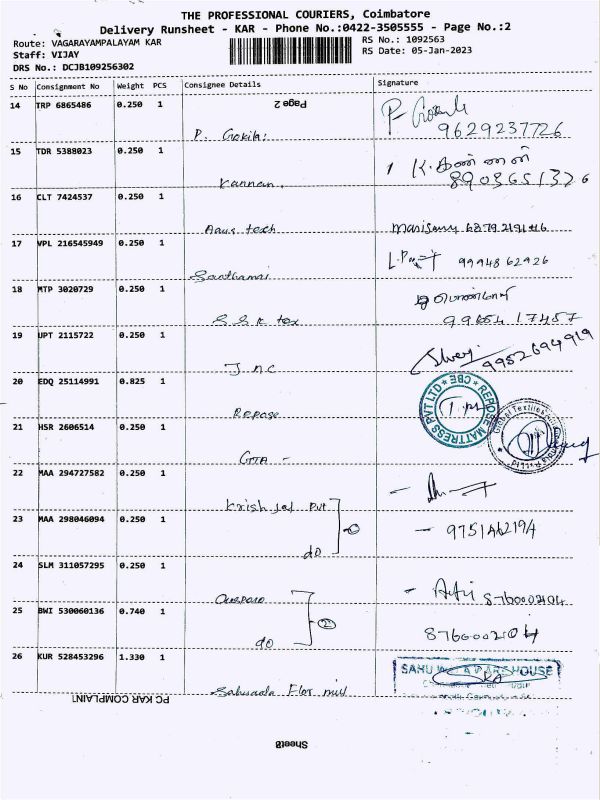 THE PROFESSIONAL COURIERS, Coimbatore
Delivery Runsheet - KAR - Phone No.:0422-3505555 - Page No.:2
Route: VAGARAYAMPALAYAM KAR
RS No.: 1092563
Staff: VIJAY
RS Date: 05-Jan-2023
DRS No.: DCJB109256302
S No Consignment No Weight PCS Consignee Details Signature
14 TRP 6865486 0.250 1 Page 2
P. Gokila 9629237726
15 TDR 5388023 0.250 1 K. கண்ணன்
Kannan. 8903651326
16 CLT 7424537 0.250 1
tech
17 VPL 216545949 0.250 1 9994862926
18 MTP 3020729 0.250 1
S S K tex 9965417457
19 UPT 2115722 0.250 1 9952694919
J n c
20 EDQ 25114991 0.825 1 REPOSE MATTRESS PVT LTD * CBE *
Repose
21 HSR 2606514 0.250 1
22 MAA 294727582 0.250 1
Krish Pvt
23 MAA 298046094 0.250 1 9751462194
do
24 SLM 311057295 0.250 1
8760002104
25 BWI 530060136 0.740 1 8760002104
do
26 KUR 528453296 1.330 1 SAHU
Flor mill
PC KAR COMPLAINT
Sheet8